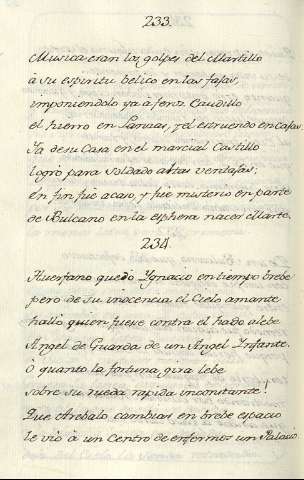 233.
Musica eran los golpes del Martillo
à su espiritu belico en las fajas,
imponiendolo ya à feroz Caudillo
el hierro en Lanzas, y el estruendo en Cajas
Ya de su Casa en el marcial Castillo
logro para soldado altas ventajas;
En fin fue acaso, y fue misterio en parte
de Bulcano en la esphera nacer Marte.
234.
Huerfano quedo Ygnacio en tiempo brebe
pero de su inocencia el Cielo amante
hallò quien fuese contra el hado alebe
Angel de Guarda de un Angel Infante.
ò quanto la fortuna gira lebe
sobre su rueda rapida inconstante!
Que Arebalo cambiar en brebe espacio
le viò à un Centro de enfermos un Palacio